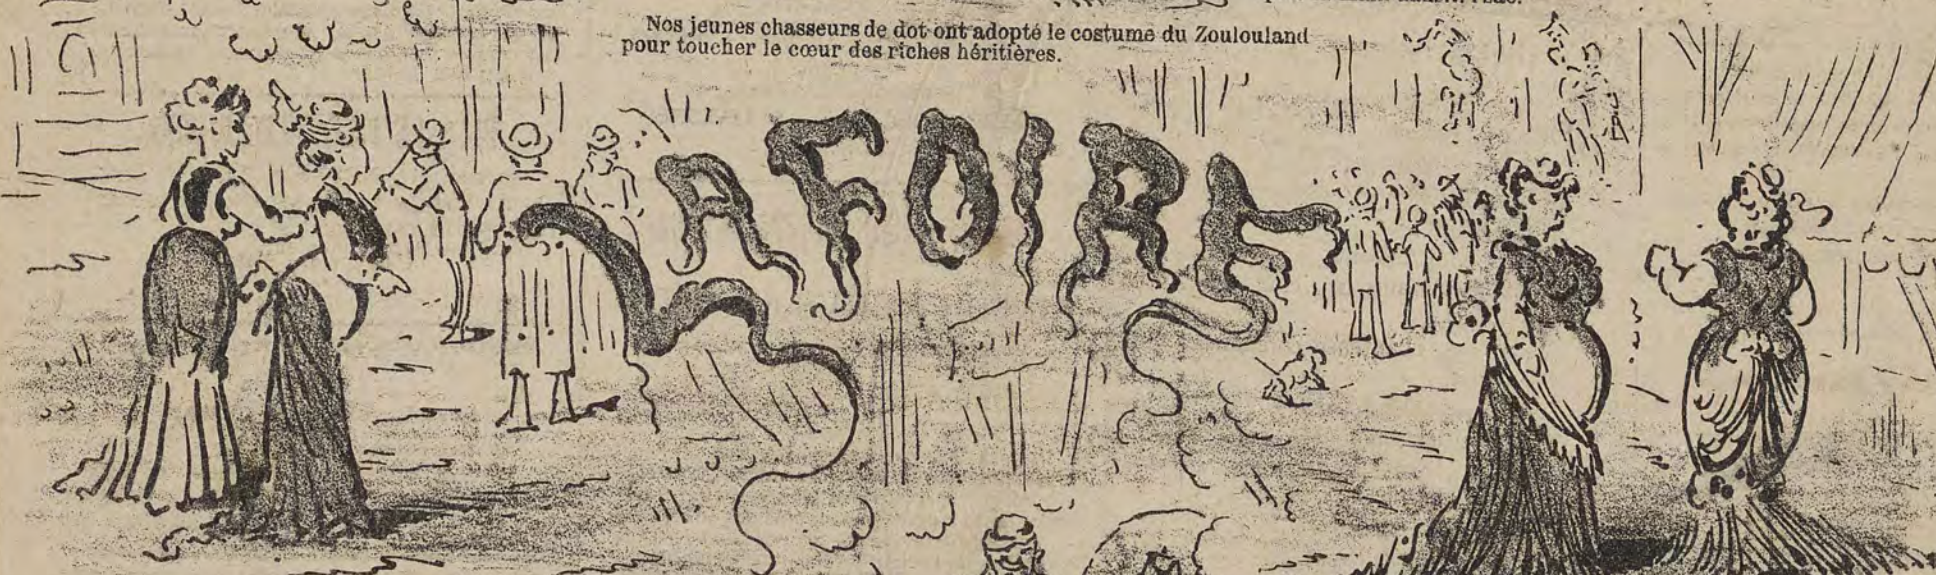 Nos jeunes chasseurs de dot ont adopté le costume du Zoulouland
pour toucher le cœur des riches héritières.
LA FOIRE